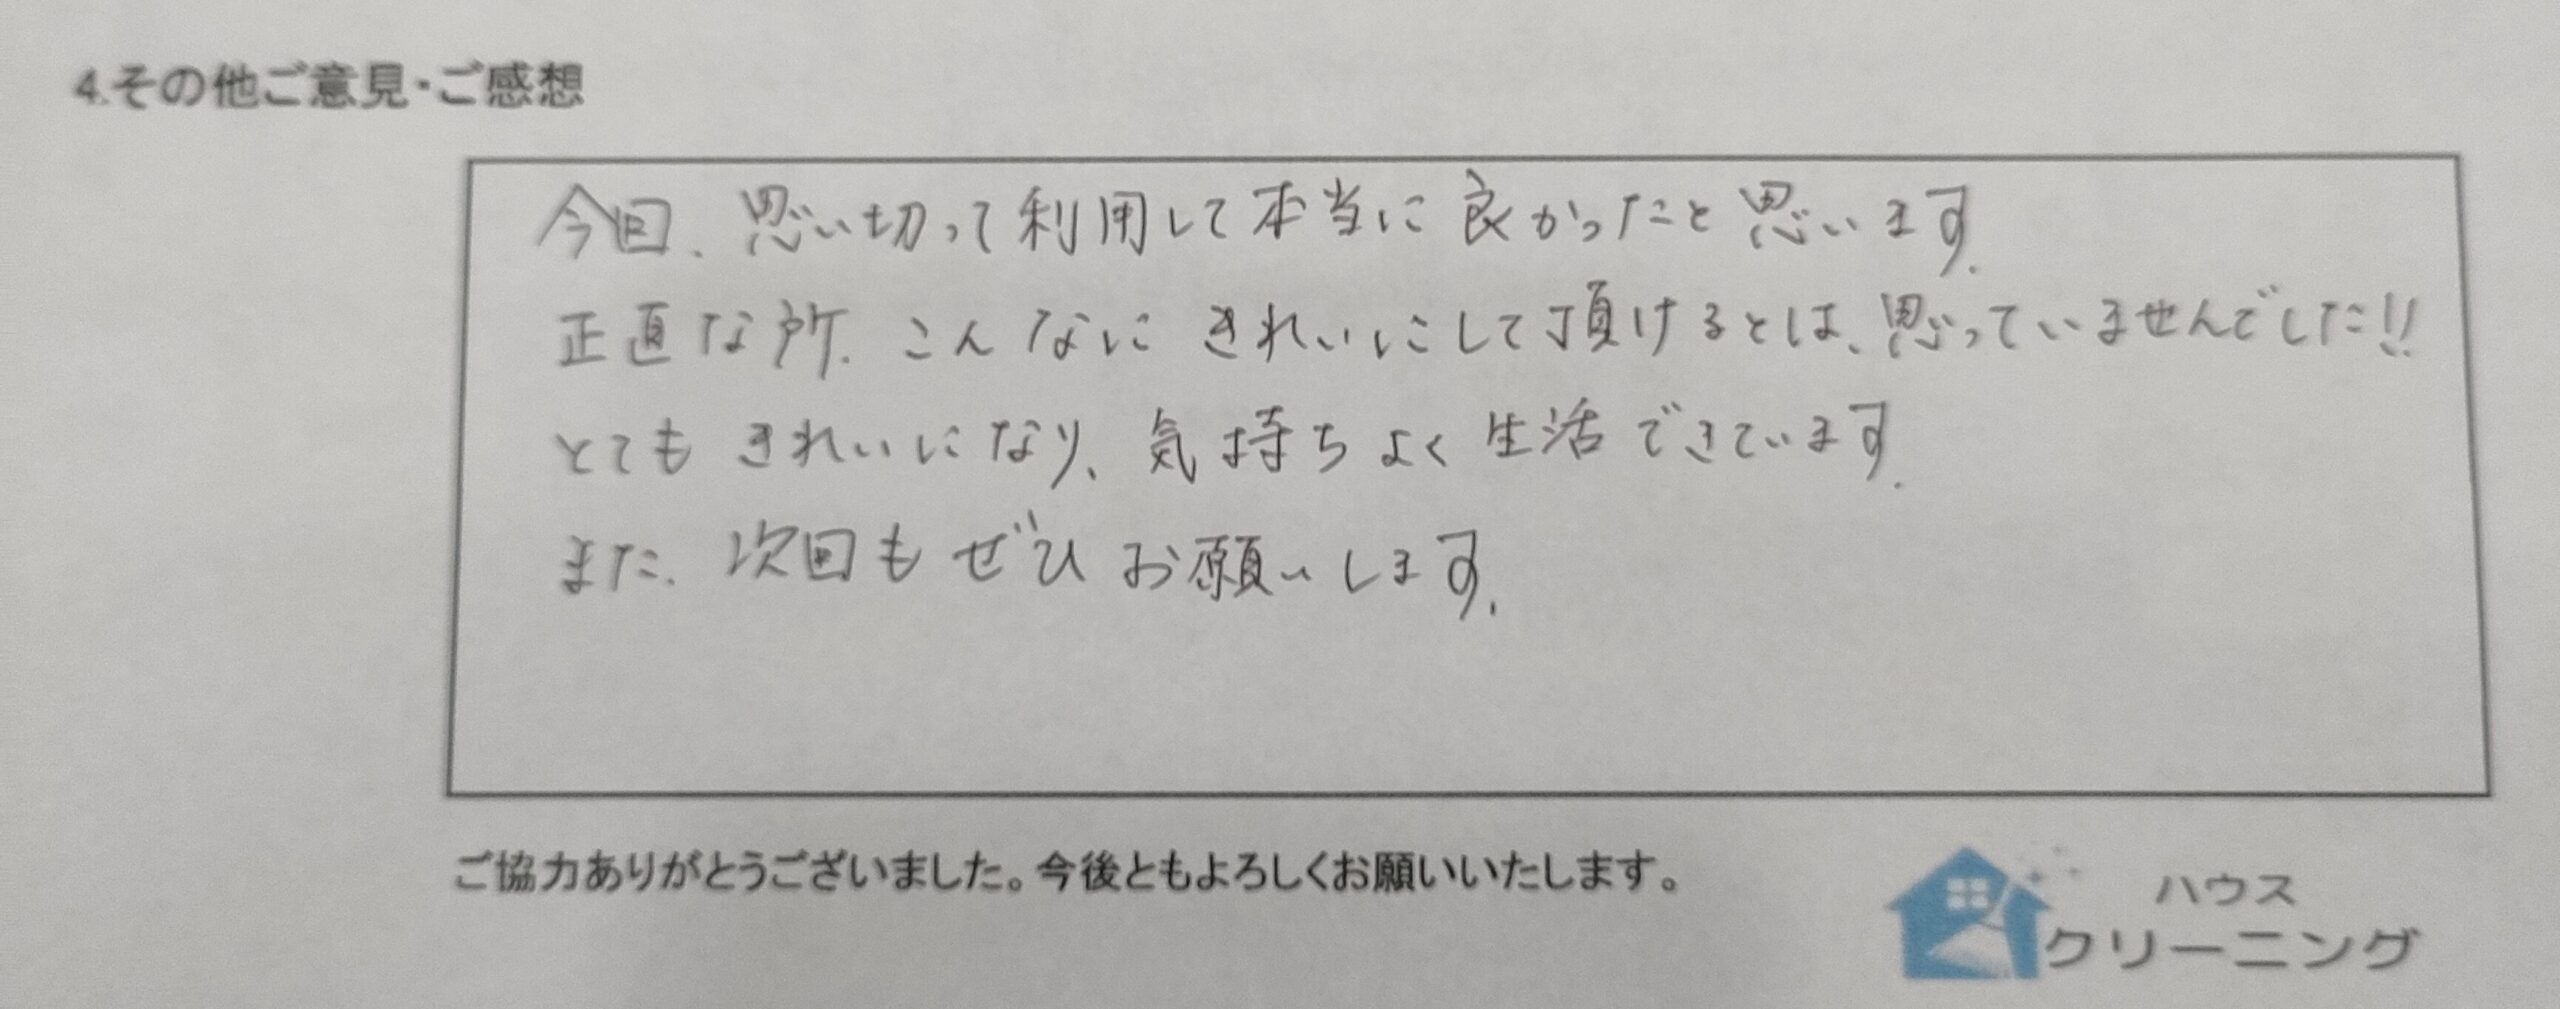 4.その他ご意見・ご感想
今回、思い切って利用して本当に良かったと思います。
正直な所、こんなにきれいにして頂けるとは、思っていませんでした!!
とてもきれいになり、気持ちよく生活できています。
また、次回もぜひお願いします。
ご協力ありがとうございました。今後ともよろしくお願いいたします。
ハウス
クリーニング